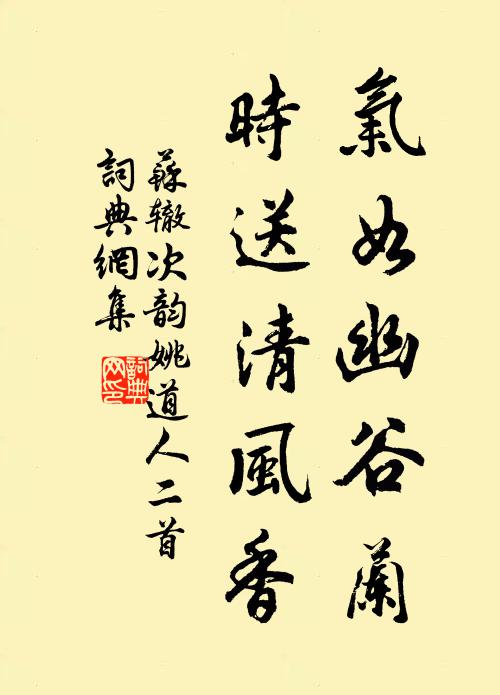 氣如幽谷蘭
時送清風香
蘇辙次韵姚道人二首
詞典網集
詞典网印